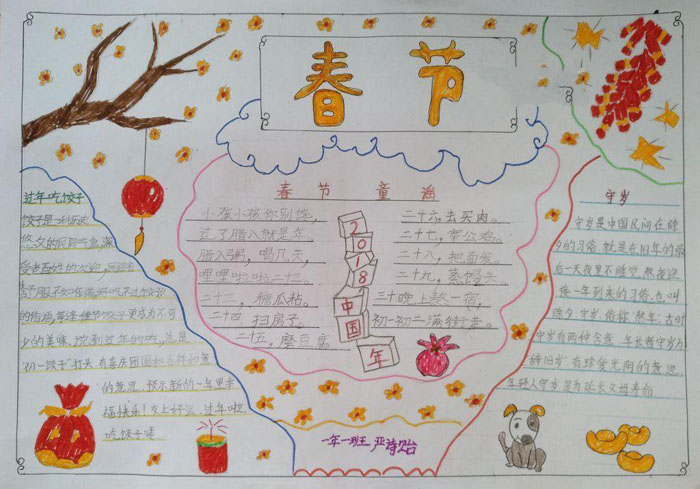 春节
春节 童谣
小孩小孩你别馋，
过了腊八就是年。
腊八粥，喝几天，
哩哩啦啦二十三。
二十三，糖瓜粘。
二十四 扫房子。
二十五，磨豆腐
二十六，去买肉。
二十七，宰公鸡。
二十八，把面发。
二十九，蒸馒头。
三十晚上熬一宿，
初一初二满街走。
2018中国年
过年吃饺子
饺子是一种历史
悠久的民间吃食，深
受老百姓的欢迎，民间有
好吃不过饺子
的俗语，每逢佳节饺子更为不可
少的美味，
初一饺子
有喜庆团圆和吉祥如意
的意思，预示新的一年里幸
福快乐！
吃饺子喽
守岁
守岁是中国民间在除
夕的习俗，就是在旧年的最
后一天夜里不睡觉，熬夜迎
接新一年到来的习俗，也叫
除夕守岁，俗称"熬年"。古时
守岁有两种含意，年长者守岁为
"辞旧岁"，有珍爱光阴的意思
年轻人守岁是为延长父母寿命
一年一班 严诗贻